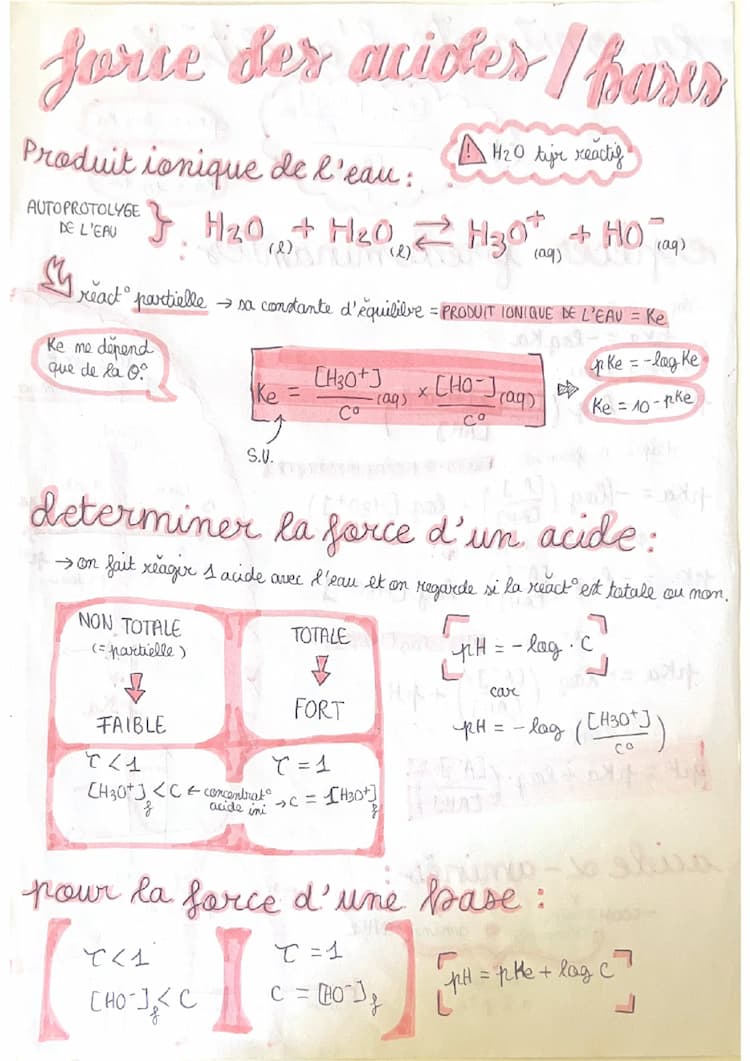 force des acides / bases
⚠ H2O tjr réactif
Produit ionique de l'eau :
AUTOPROTOLYGE DE L'EAU } H2O (l) + H2O (l) ⇄ H3O+ (aq) + HO- (aq)
réact° partielle → sa constante d'équilibre = PRODUIT IONIQUE DE L'EAU = Ke
Ke ne dépend
que de la θ°.
Ke = [H3O+] (aq) / C° × [HO-] (aq) / C° ⇒
pKe = -log Ke
Ke = 10 - pKe
S.U.
determiner la force d'un acide :
→ on fait réagir 1 acide avec l'eau et on regarde si la réact° est totale ou non.
NON TOTALE
(= partielle)
↓
FAIBLE
TOTALE
↓
FORT
τ < 1
[H3O+]f < C ← concentrat°
acide ini → C = 1[H3O+]f
τ = 1
pH = - log · C
car
pH = - log ([H3O+] / C°)
pour la force d'une base :
τ < 1
[HO-]f < C
τ = 1
C = [HO-]f
pH = pKe + log C